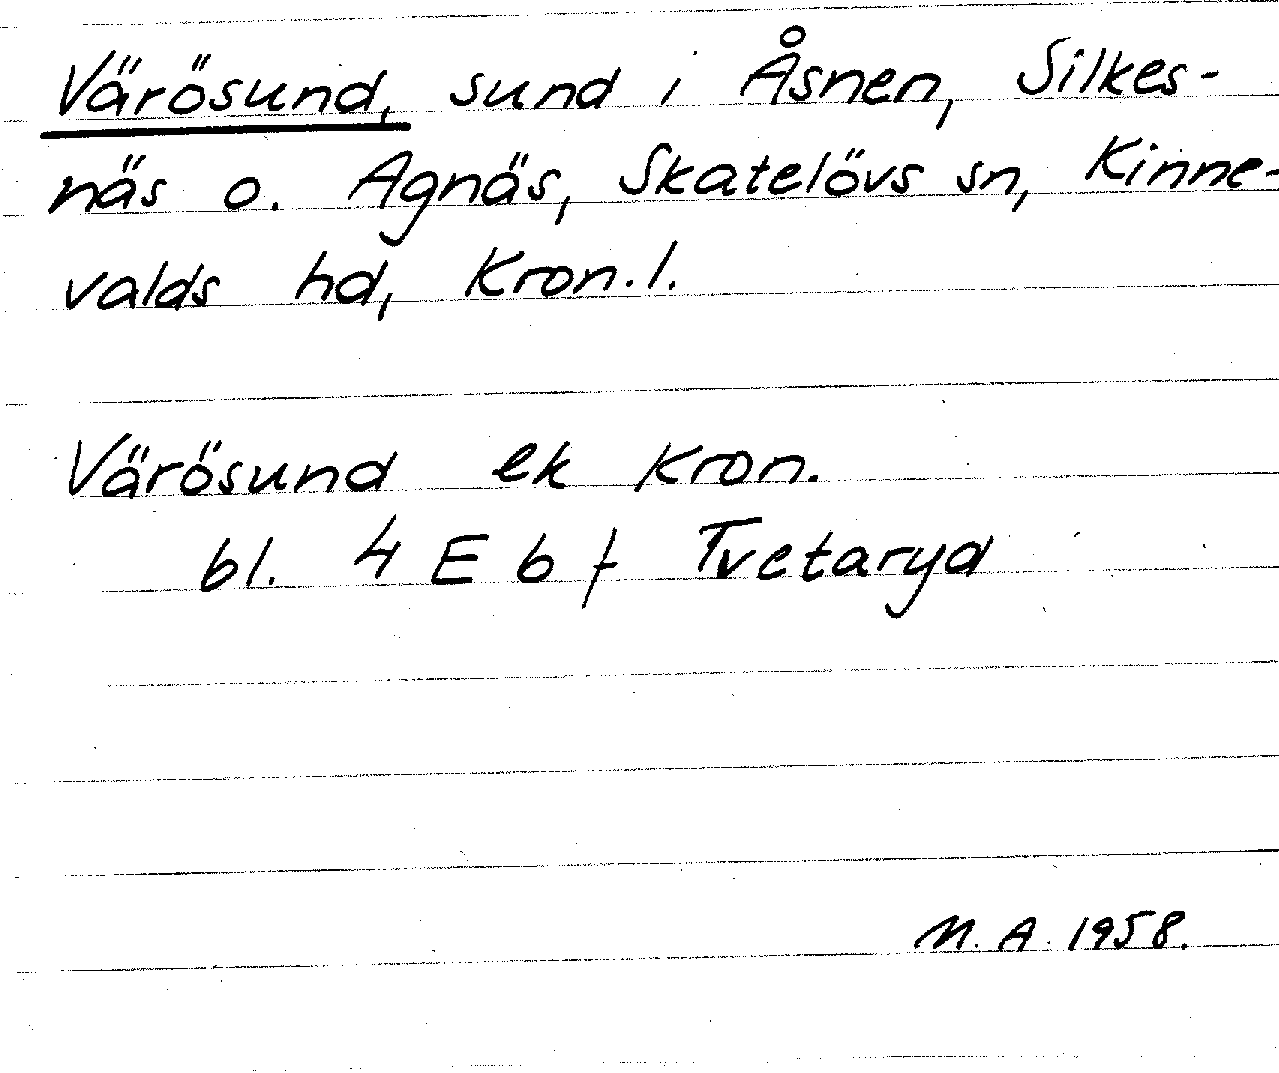 Värösund, sund i Åsnen, Silkes-
näs o. Agnäs, Skatelövs sn, Kinne-
valds hd, Kron. l.
Värösund ek Kron.
bl. 4 E b f Tvetaryd
M. A. 1958.